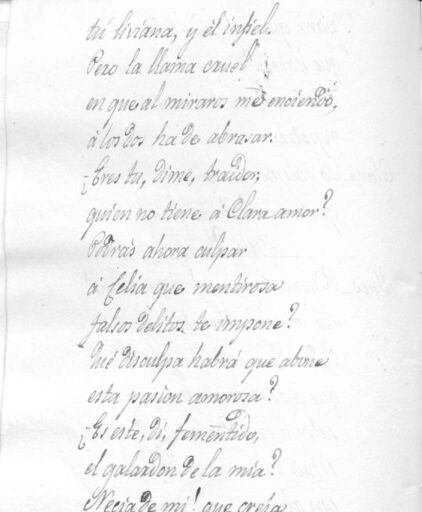 tú liviana, y él infiel.
Pero la llama cruel
en que al miraros me enciendo,
á los dos ha de abrasar.
¿Eres tu, dime, traidor,
quien no tiene á Clara amor?
Podrás ahora culpar
á Celia que mentirosa
falsos delitos te impone?
Qué disculpa habrá que abone
esta pasion amorosa?
¿Es este, di, fementido,
el galardon de la mia?
Necia de mi! que creía